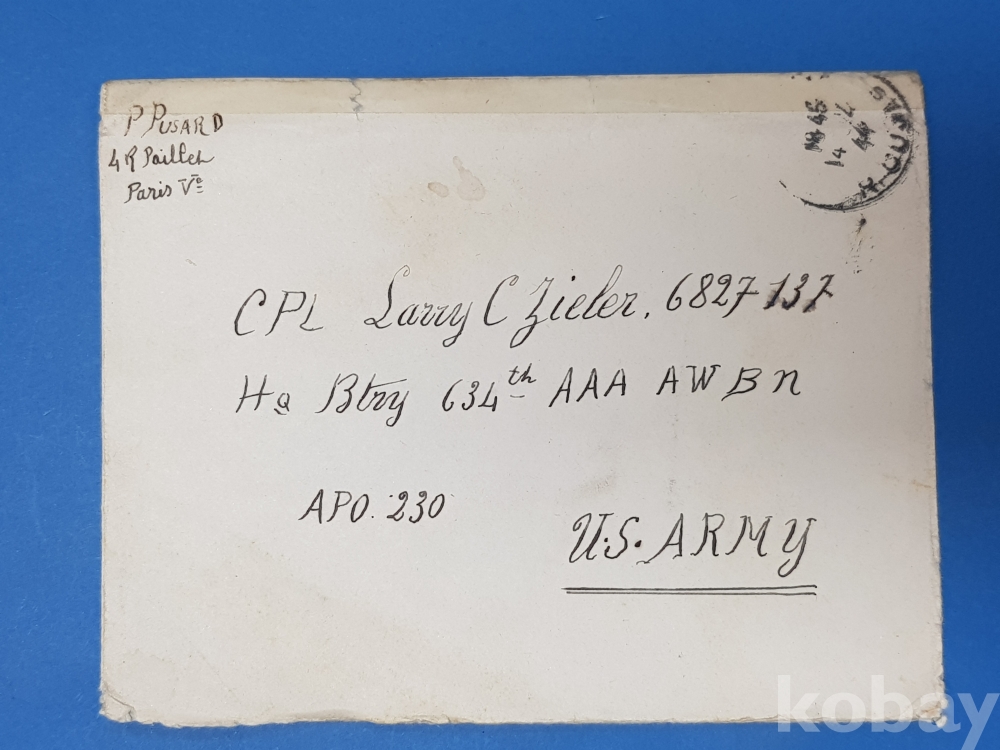 P PUSARD
4 R Paillet
Paris Ve
18 45
14 2
44
R CUJAS
CPL Larry C Zieler, 6827137
Hq Btry 634th AAA AW BN
APO. 230
U.S. ARMY
kobay